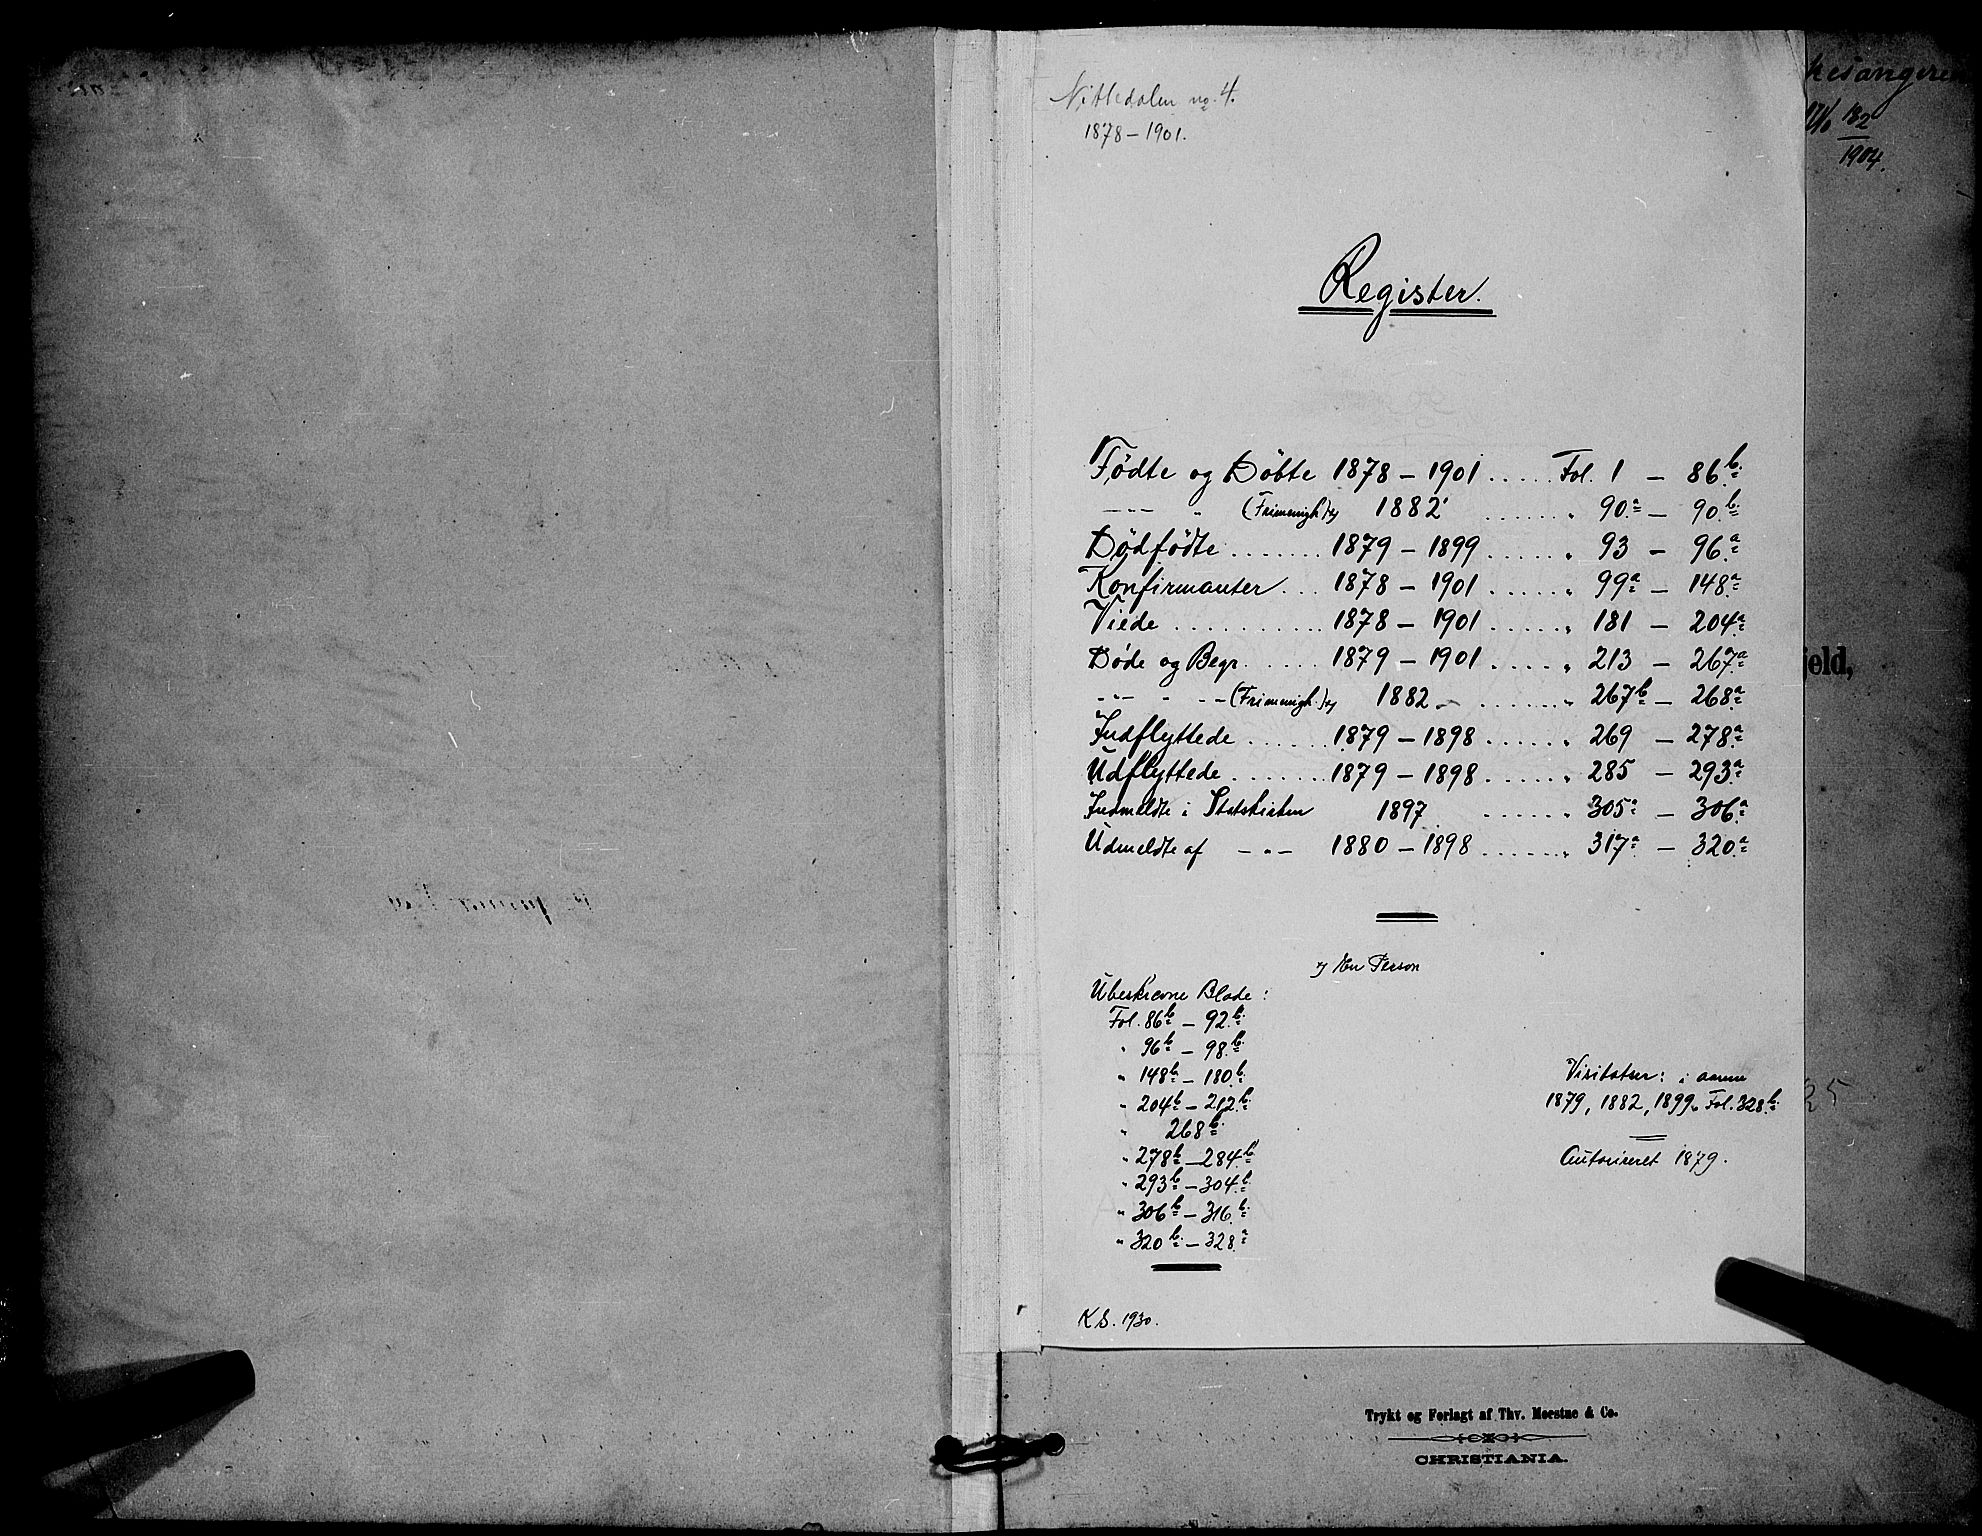 Nittedalen no. 4.
1878 – 1901.
Register.
Fødte og Døbte 1878 – 1901 ..... Fol. 1 – 86b
– – – " (Frimenigh.) x) 1882 ...... " 90a – 90b
Dødfødte ....... 1879 – 1899 ...... " 93 – 96a
Konfirmanter ... 1878 – 1901 ...... " 99a – 148a
Viede ........... 1878 – 1901 ...... " 181 – 204a
Døde og Begr. ..... 1879 – 1901 ...... " 213 – 267a
– " – " – – (Frimenigh.) x) 1882 – ....... " 267b – 268a
Indflyttede ....... 1879 – 1898 ...... " 269 – 278a
Udflyttede ....... 1879 – 1898 ...... " 285 – 293a
Indmeldte i Statskirken 1897 ...... " 305a – 306a
Udmeldte af – " – 1880 – 1898 ...... " 317a – 320a
x) En Person
Ubeskrevne Blade :
Fol. 86b – 92b
" 96b – 98b
" 148b – 180b
" 204b – 212b
" 268b
" 278b – 284b
" 293b – 304b
" 306b – 316b
" 320b – 328a
Visitatser : i aarene
1879, 1882, 1899. Fol. 328b
Autoriseret 1879.
K S. 1930.
kesangeren
182
1904.
jeld,
Trykt og Forlagt af Thv. Moestue & Co.
CHRISTIANIA.